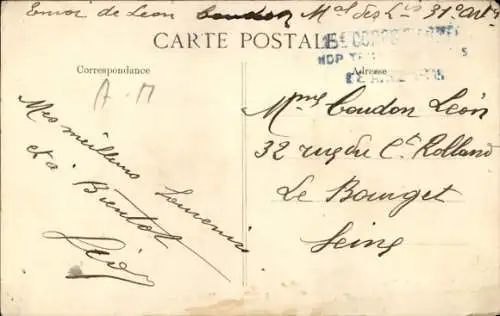 Envoi de Leon Coudon Mal des Lis 31e Artie
CARTE POSTALE
15e CORPS D'ARMÉE
HOP
Correspondance
Adresse
A-M
Mes meilleurs Souvenirs
et a Bientot
Léon
Mme Coudon Léon
32 rue du Ct Rolland
Le Bourget
Seine